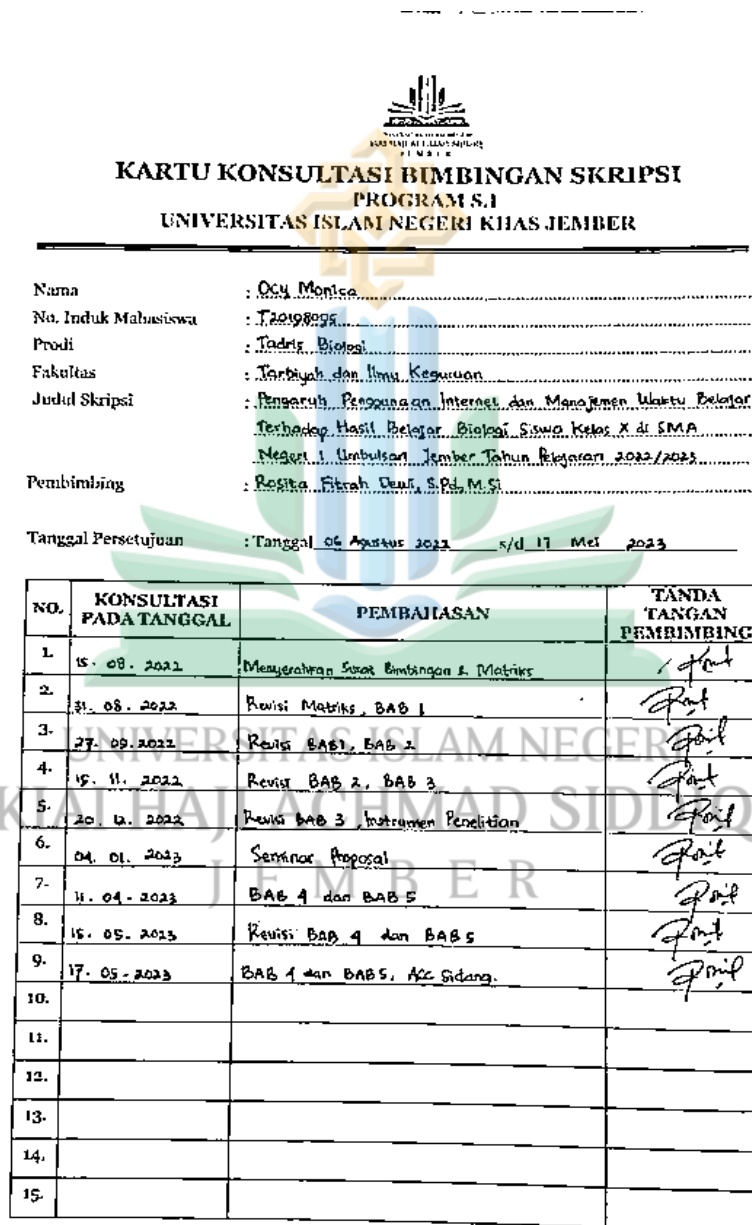 KARTU KONSULTASI BIMBINGAN SKRIPSI
PROGRAM S.1
UNIVERSITAS ISLAM NEGERI KHAS JEMBER
Nama : Ocy Monica
No. Induk Mahasiswa : T20198095
Prodi : Tadris Biologi
Fakultas : Tarbiyah dan Ilmu Keguruan
Judul Skripsi : Pengaruh Penggunaan Internet dan Manajemen Waktu Belajar
Terhadap Hasil Belajar Biologi Siswa Kelas X di SMA
Negeri 1 Umbulsari Jember Tahun Pelajaran 2022/2023
Pembimbing : Rosita Fitrah Dewi, S.Pd, M.Si
Tanggal Persetujuan : Tanggal 06 Agustus 2022 s/d 17 Mei 2023
NO. KONSULTASI PADA TANGGAL PEMBAHASAN TANDA TANGAN PEMBIMBING
1. 15. 08. 2022 Menyerahkan Surat Bimbingan & Matriks
2. 31. 08. 2022 Revisi Matriks, BAB 1
3. 27. 09. 2022 Revisi BAB 1, BAB 2
4. 15. 11. 2022 Revisi BAB 2, BAB 3
5. 20. 12. 2022 Revisi BAB 3, Instrumen Penelitian
6. 04. 01. 2023 Seminar Proposal
7. 11. 04. 2023 BAB 4 dan BAB 5
8. 15. 05. 2023 Revisi BAB 4 dan BAB 5
9. 17. 05. 2023 BAB 4 dan BAB 5, ACC Sidang.
10.
11.
12.
13.
14.
15.
UNIVERSITAS ISLAM NEGERI
KIAI HAJI ACHMAD SIDDIQ
JEMBER